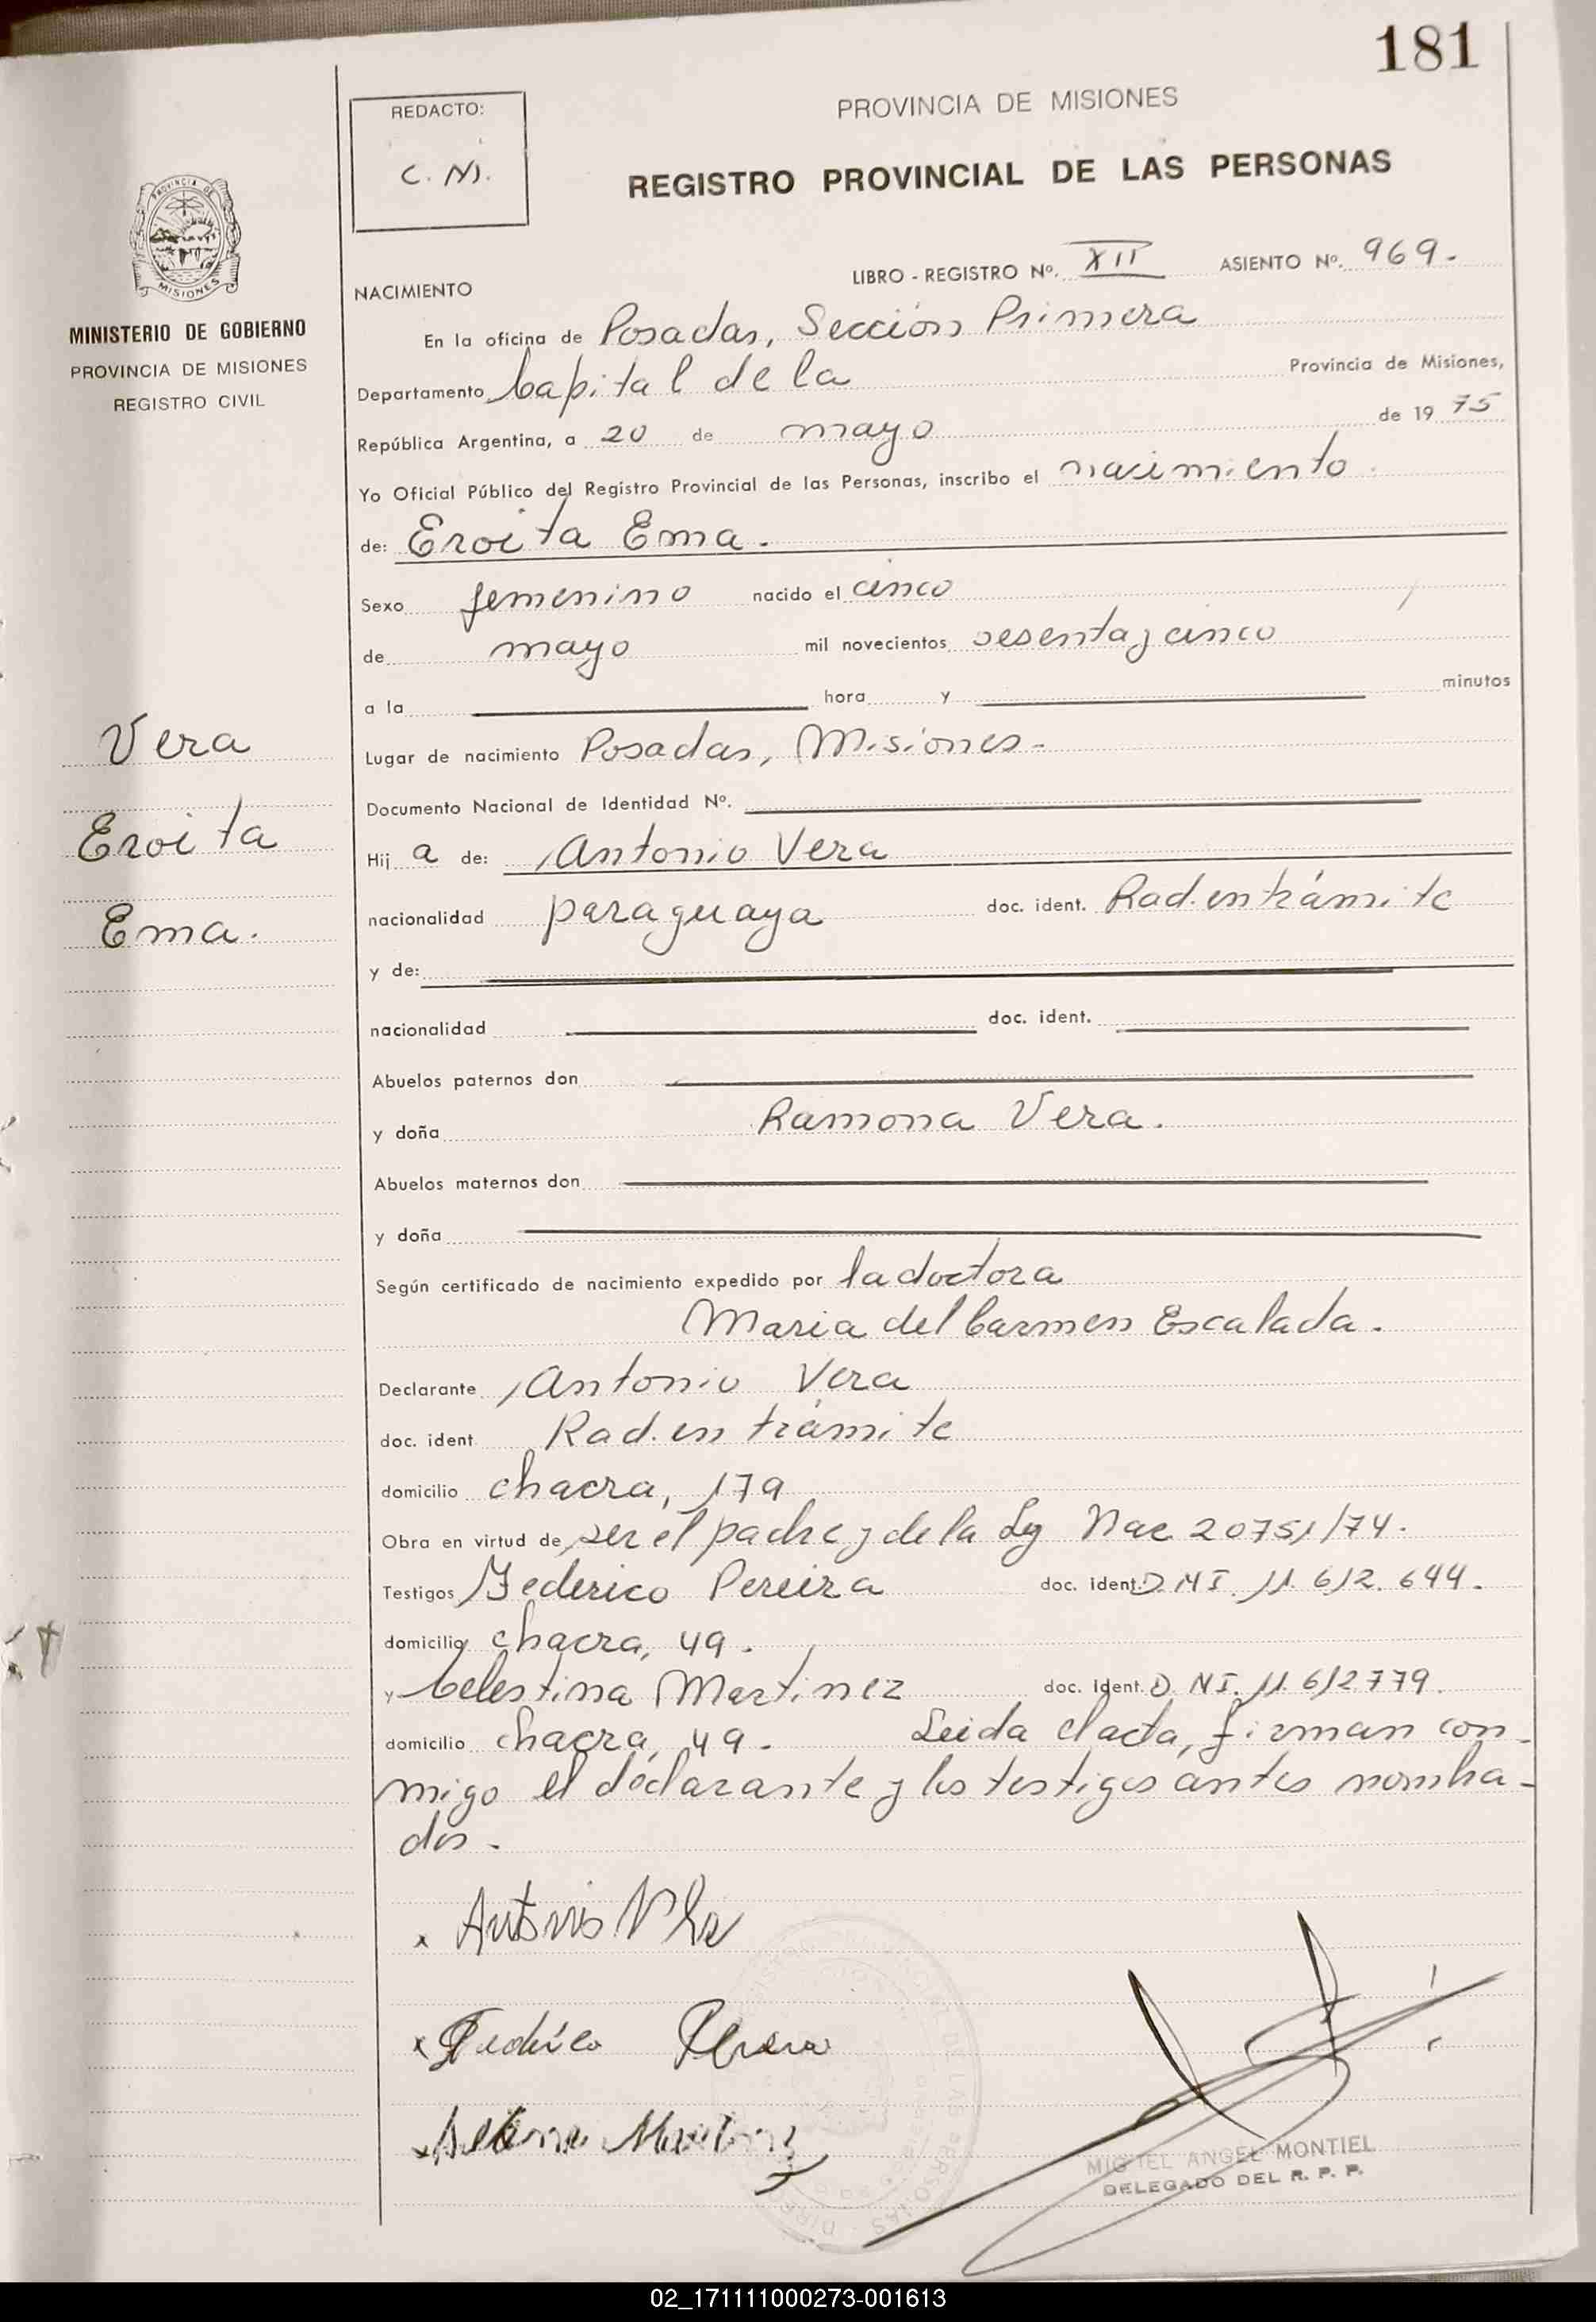 181
REDACTO:
C. N.
PROVINCIA DE MISIONES
REGISTRO PROVINCIAL DE LAS PERSONAS
PROVINCIA DE
MISIONES
MINISTERIO DE GOBIERNO
PROVINCIA DE MISIONES
REGISTRO CIVIL
LIBRO - REGISTRO Nº. XII ASIENTO Nº. 969.
NACIMIENTO
En la oficina de Posadas, Sección Primera
Departamento Capital de la Provincia de Misiones,
República Argentina, a 20 de mayo de 1975
Yo Oficial Público del Registro Provincial de las Personas, inscribo el nacimiento.
de: Eroita Ema.
Sexo femenino nacido el cinco
de mayo mil novecientos sesenta y cinco
a la hora y minutos
Vera
Eroita
Ema.
Lugar de nacimiento Posadas, Misiones.
Documento Nacional de Identidad Nº.
Hij a de: Antonio Vera
nacionalidad paraguaya doc. ident. Rad. en trámite
y de:
nacionalidad doc. ident.
Abuelos paternos don
y doña Ramona Vera.
Abuelos maternos don
y doña
Según certificado de nacimiento expedido por la doctora
Maria del Carmen Escalada.
Declarante Antonio Vera
doc. ident Rad. en trámite
domicilio chacra, 179
Obra en virtud de ser el padre y de la Ley Nac 20751/74.
Testigos Federico Pereira doc. ident. D.N.I. 11.612.644.
domicilio chacra, 49.
y Celestina Martinez doc. Ident. D.N.I. 11.612779.
domicilio chacra, 49. Leida el acta, firman con-
migo el declarante y los testigos antes nombra-
dos.
x Antonio Vera
x Federico Pereira
MIGUEL ANGEL MONTIEL
DELEGADO DEL R. P. P.
02_171111000273-001613